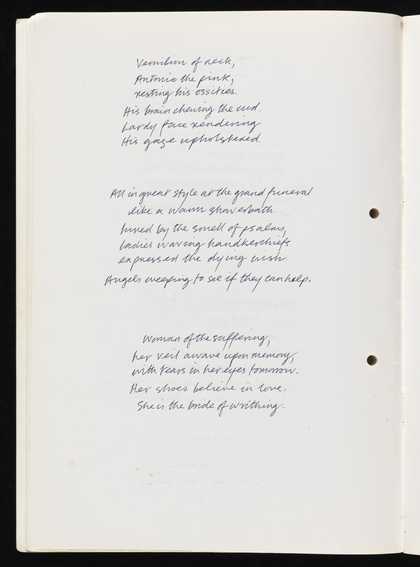 Vermilion of neck,
Antonio the pink,
resting his ossities.
His brain chewing the cud.
Lardy face rendering
His gaze upholstered
All in great style at the grand funeral
like a warm showerbath
lured by the smell of psalms,
ladies waving handkerchiefs
expressed the dying wish
Angels weeping to see if they can help.
Woman of the suffering,
her veil a wave upon memory,
with tears in her eyes tomorrow.
Her shoes believe in love.
She is the bride of writhing.